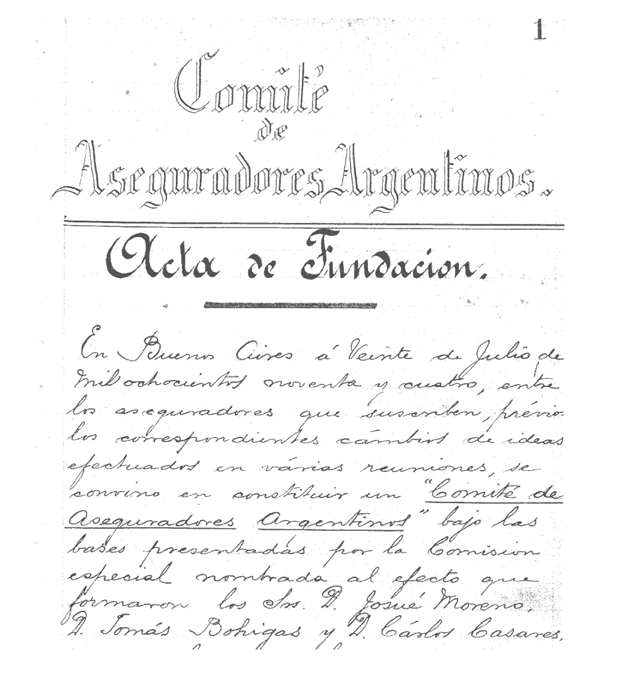 1
Comité
de
Aseguradores Argentinos.
Acta de Fundacion.
En Buenos Aires á Veinte de Julio de
Mil ochocientos noventa y cuatro, entre
los aseguradores que suscriben, prévio
los correspondientes cámbios de ideas
efectuados en várias reuniones, se
convino en constituir un "Comité de
Aseguradores Argentinos" bajo las
bases presentadas por la Comision
especial nombrada al efecto que
formaron los Srs. D. Josué Moreno,
D. Tomás Bohigas y D. Cárlos Casares.